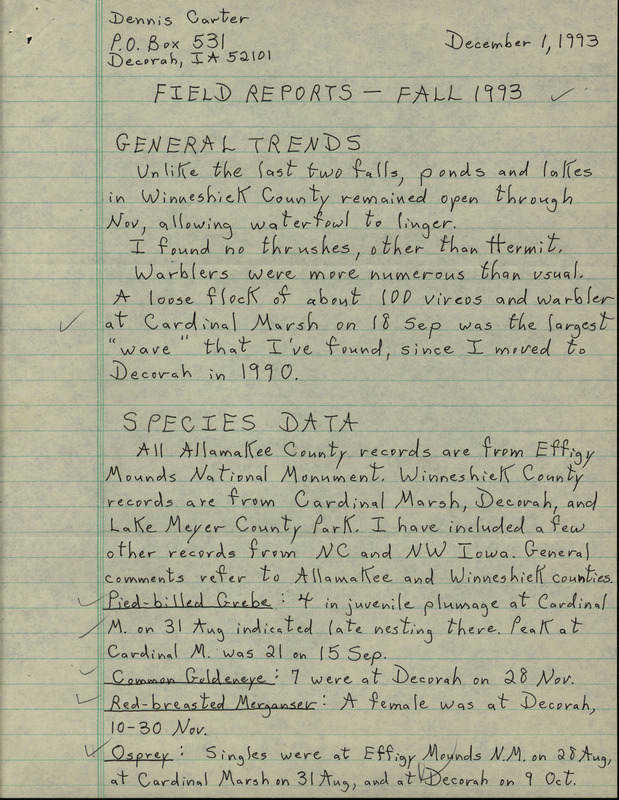 Dennis Carter
P.O. Box 531
December 1, 1993
Decorah, IA 52101
FIELD REPORTS — FALL 1993
GENERAL TRENDS
Unlike the last two falls, ponds and lakes
in Winneshiek County remained open through
Nov, allowing waterfowl to linger.
I found no thrushes, other than Hermit.
Warblers were more numerous than usual.
A loose flock of about 100 vireos and warbler
at Cardinal Marsh on 18 Sep was the largest
"wave" that I've found, since I moved to
Decorah in 1990.
SPECIES DATA
All Allamakee County records are from Effigy
Mounds National Monument. Winneshiek County
records are from Cardinal Marsh, Decorah, and
Lake Meyer County Park. I have included a few
other records from NC and NW Iowa. General
comments refer to Allamakee and Winneshiek counties.
Pied-billed Grebe: 4 in juvenile plumage at Cardinal
M. on 31 Aug indicated late nesting there. Peak at
Cardinal M. was 21 on 15 Sep.
Common Goldeneye: 7 were at Decorah on 28 Nov.
Red-breasted Merganser: A female was at Decorah,
10-30 Nov.
Osprey: Singles were at Effigy Mounds N.M. on 28 Aug,
at Cardinal Marsh on 31 Aug, and at Decorah on 9 Oct.